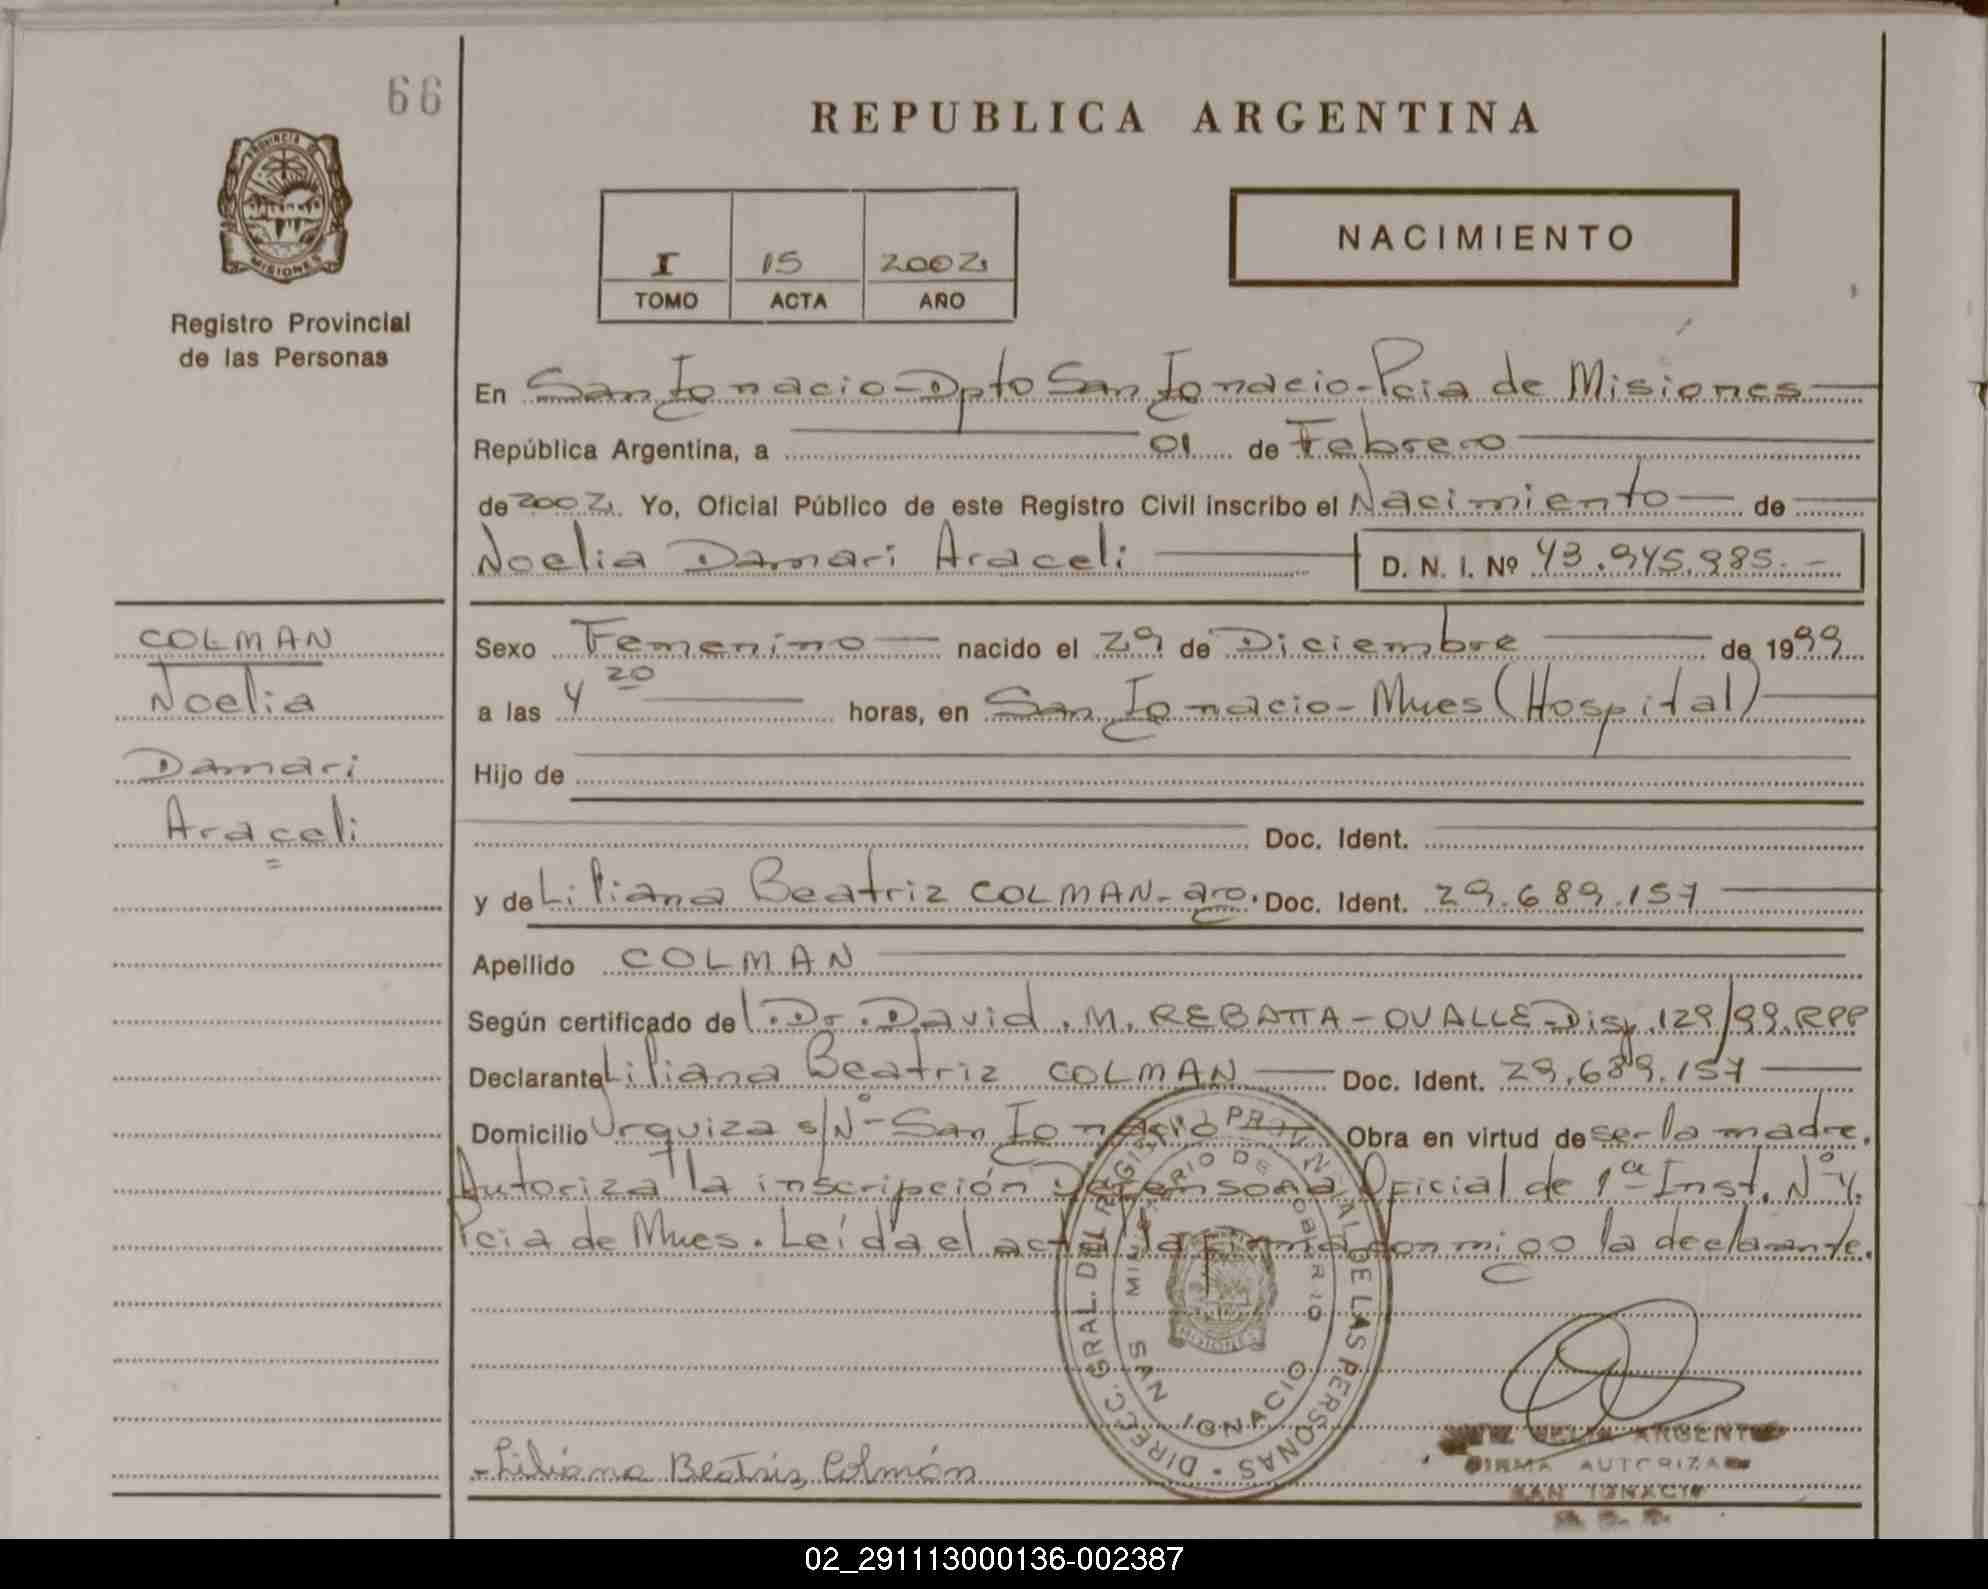 66
REPUBLICA ARGENTINA
PROVINCIA DE
MISIONES
Registro Provincial
de las Personas
I 15 2002
TOMO ACTA AÑO
NACIMIENTO
En San Ignacio - Dpto San Ignacio - Pcia de Misiones
República Argentina, a 01 de Febrero
de 2002 Yo, Oficial Público de este Registro Civil inscribo el Nacimiento de
Noelia Damari Araceli D. N. I. Nº 43.945.985.-
COLMAN
Noelia
Damari
Araceli
Sexo Femenino nacido el 29 de Diciembre de 1999
a las 4 20 horas, en San Ignacio - Mnes (Hospital)
Hijo de
Doc. Ident.
y de Liliana Beatriz COLMAN - arg. Doc. Ident. 29.689.157
Apellido COLMAN
Según certificado de l. Dr. David. M. REBATTA - OVALLE - Disp. 129/99. RPP
Declarante Liliana Beatriz COLMAN Doc. Ident. 29.689.157
Domicilio Urquiza s/Nº - San Ignacio Obra en virtud de ser la madre.
Autoriza la inscripción Defensora Oficial de 1ª Inst. Nº 4.
Pcia de Mnes. Leída el acta la firma conmigo la declarante.
DIRECC. GRAL. DEL REGISTRO PROVINCIAL DE LAS PERSONAS
MINISTERIO DE GOBIERNO
SAN IGNACIO
MISIONES
- Liliana Beatriz Colmán
DELIA ARGENT
FIRMA AUTORIZADA
SAN IGNACIO
02_291113000136-002387